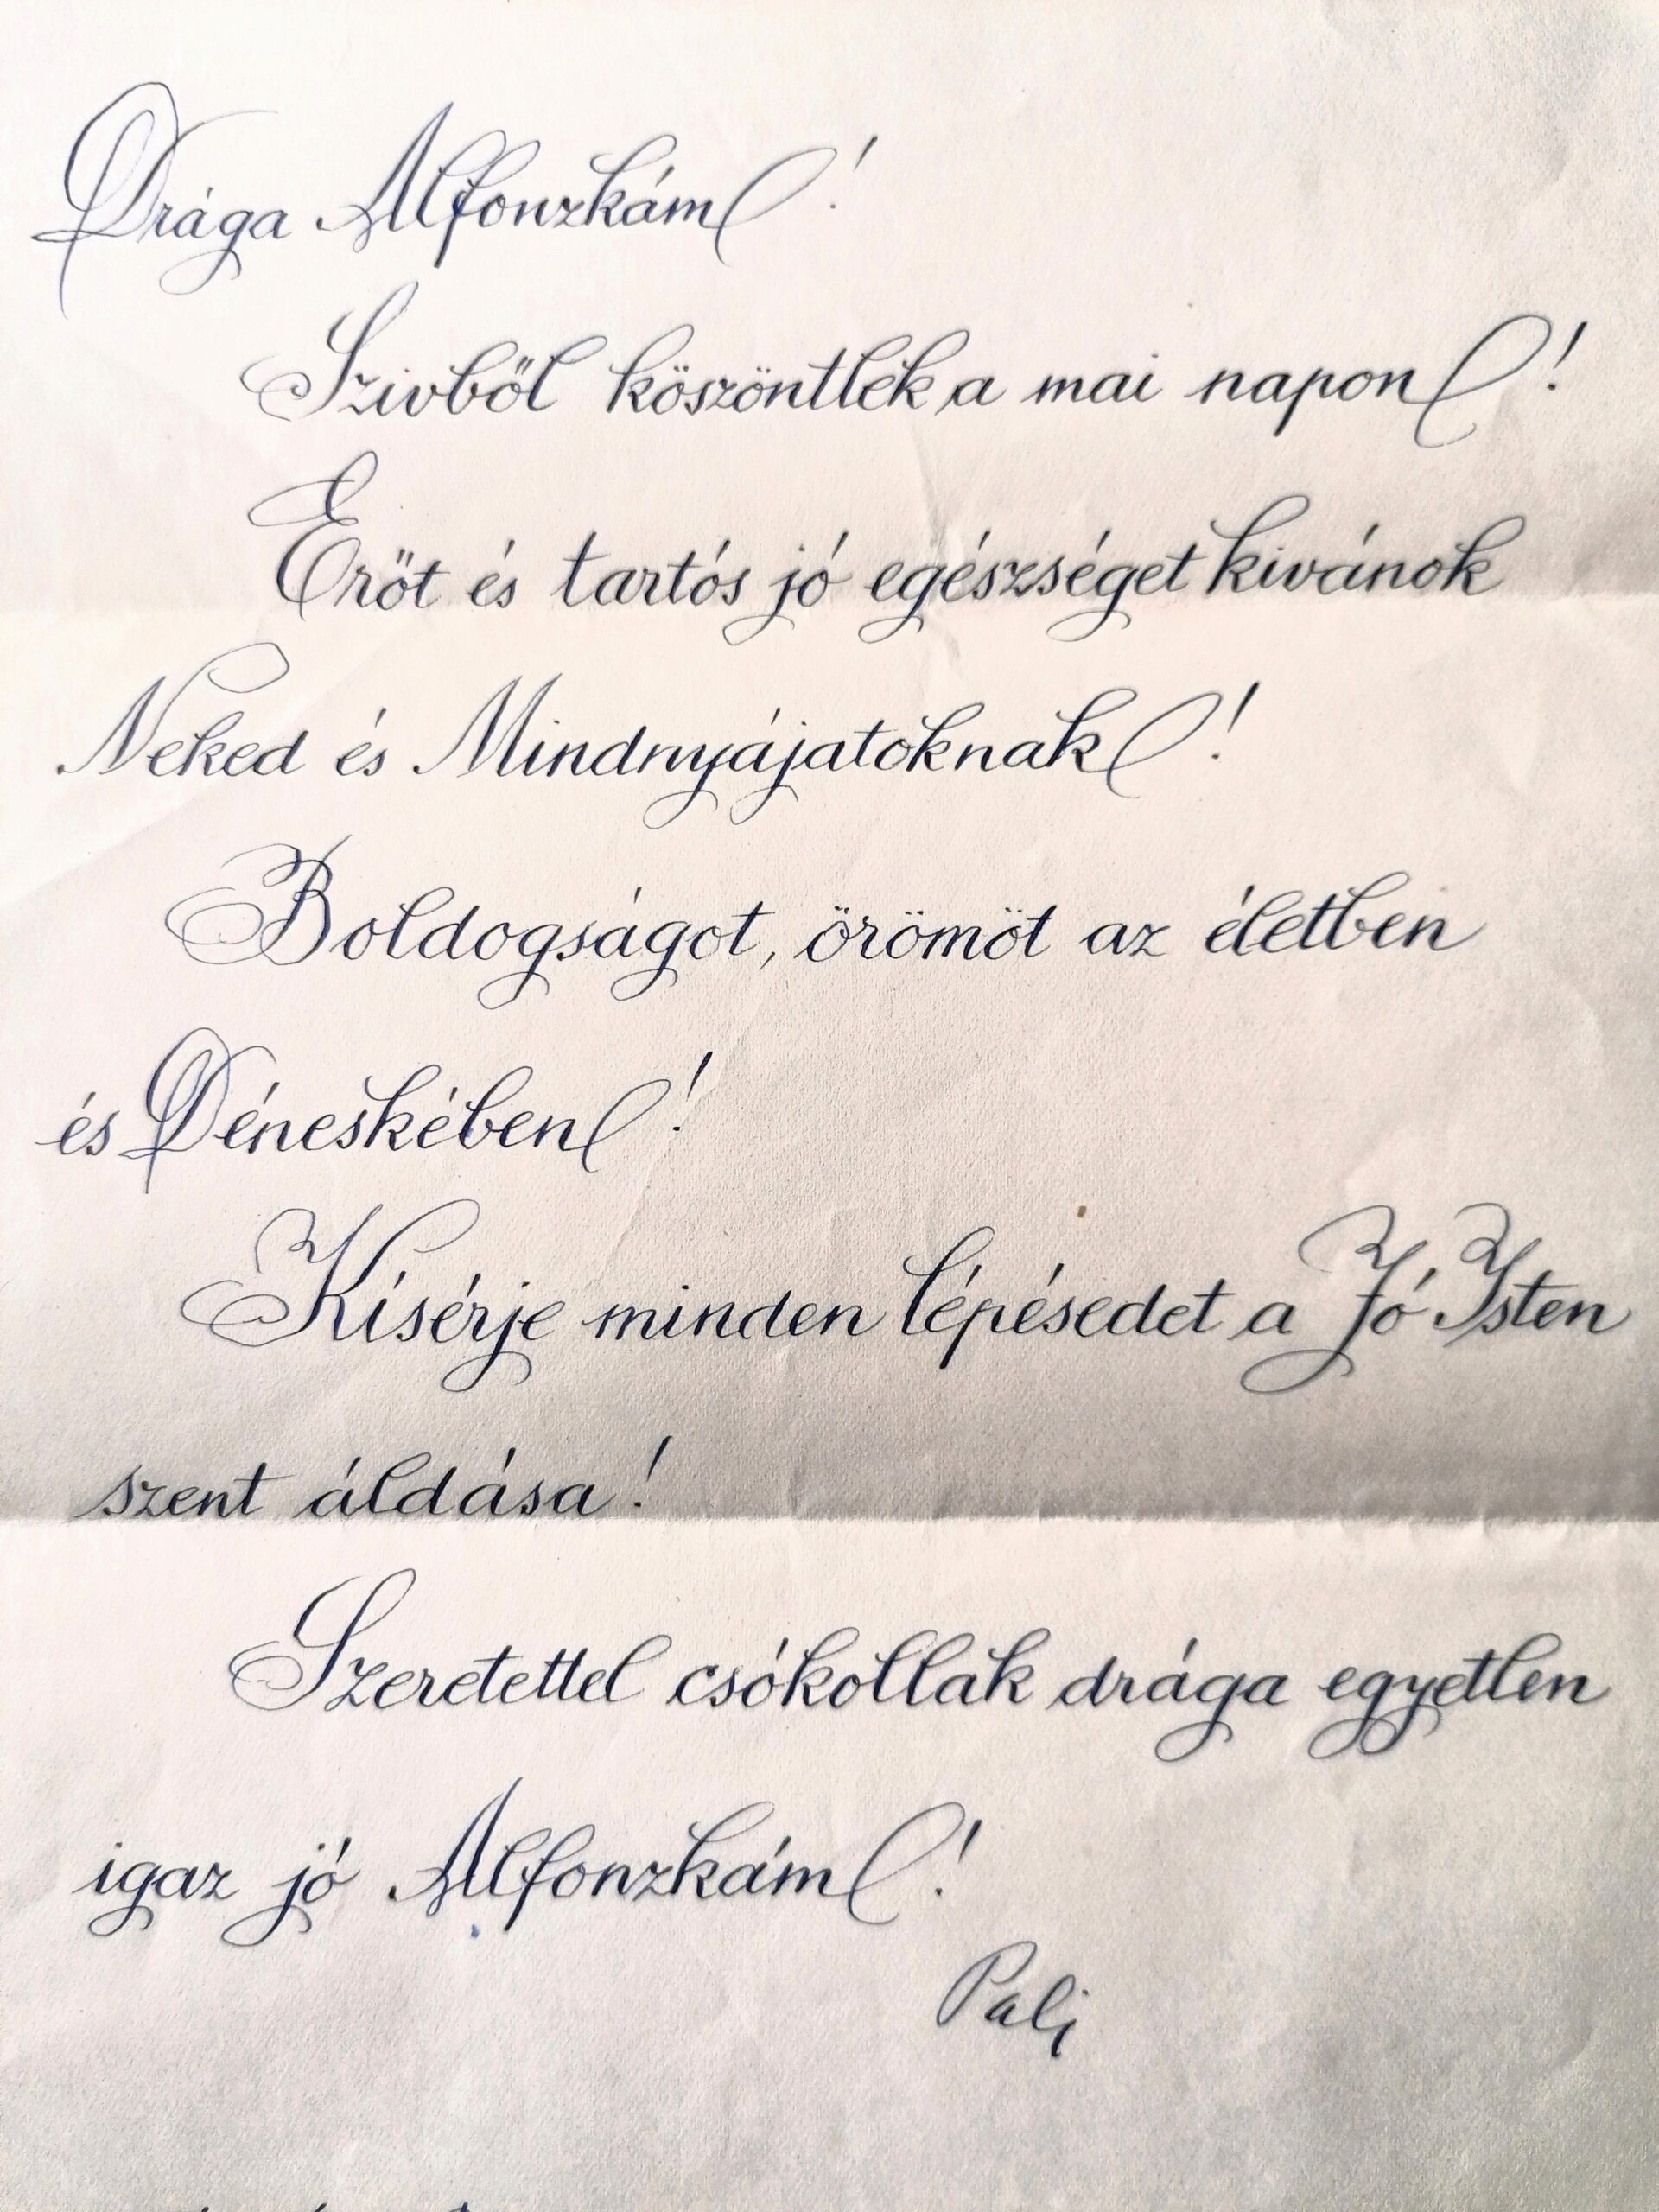 Drága Alfonzkám!
Szivből köszöntlek a mai napon!
Erőt és tartós jó egészséget kivánok
Neked és Mindnyájatoknak!
Boldogságot, örömöt az életben
és Déneskében!
Kísérje minden lépésedet a Jó Isten
szent áldása!
Szeretettel csókollak drága egyetlen
igaz jó Alfonzkám!
Pali